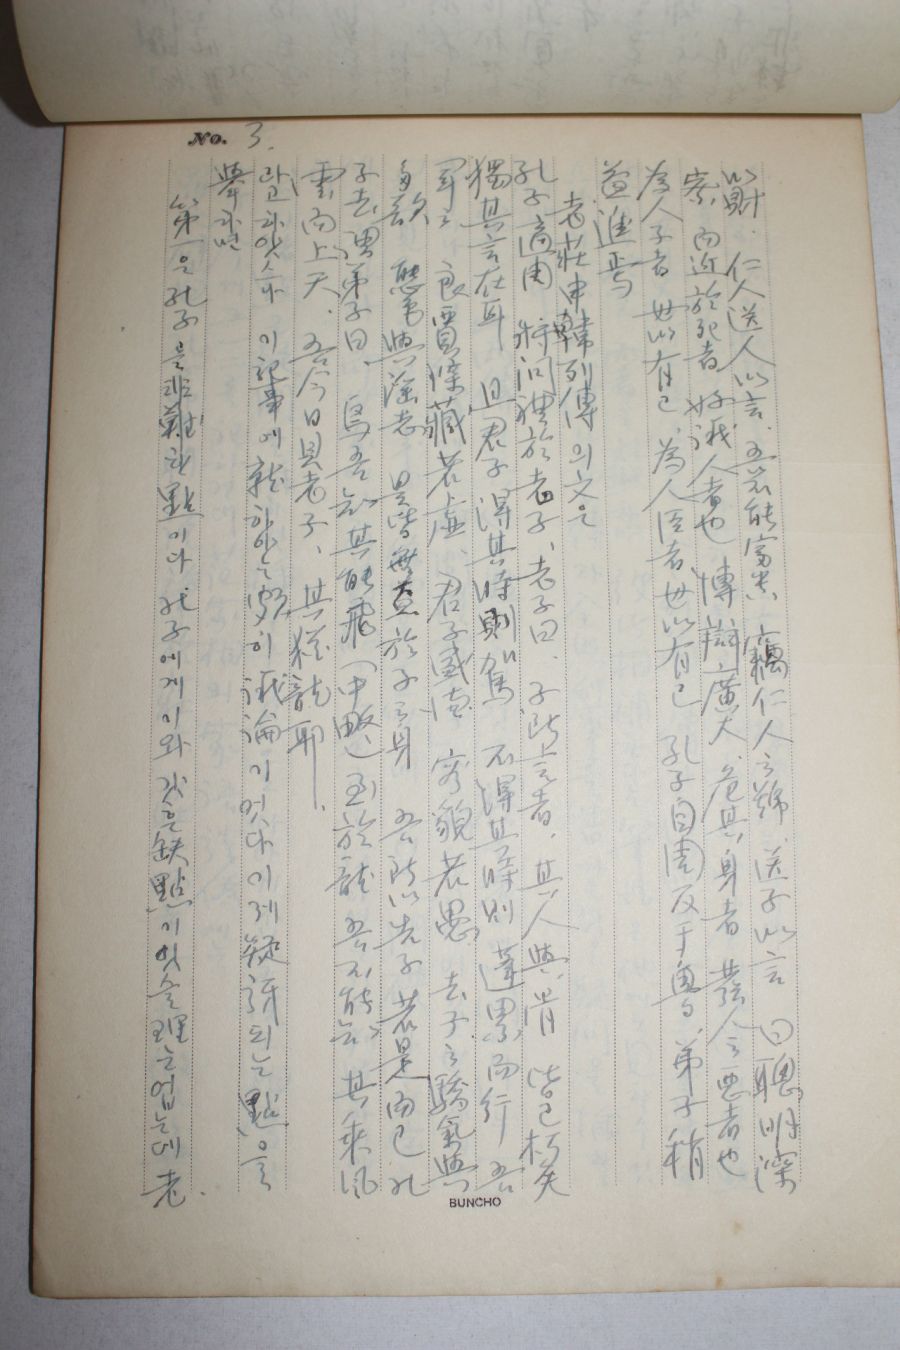 No. 3.
以財. 仁人送人以言. 吾不能富貴 竊仁人之號. 送子以言 曰 聰明深
察 而近於死者 好議人者也 博辯廣大 危其身者 發人之惡者也
為人子者 毋以有己 為人臣者 毋以有己 孔子自周反于魯. 弟子稍
益進焉
老莊申韓列傳의 文은
孔子適周 將問禮於老子、老子曰、子所言者、其人與骨 皆已朽矣
獨其言在耳 且君子 得其時則駕 不得其時則 蓬累而行 吾
聞之 良賈深藏若虛、君子盛德 容貌若愚 去子之驕氣與
多欲 態色與淫志 是皆無益於子之身 吾所以告子 若是而已 孔
子去 謂弟子曰、鳥吾知其能飛 (中畧) 至於龍 吾不能知 其乘風
雲而上天、吾今日見老子、其猶龍耶
라고 하얏스니 이 記事에 就하야는 頗히 議論이 잇다 이제 疑訝되는 點을
擧하면
第一은 孔子를 非難한 點이다 孔子에게 이와 갓흔 缺點이 잇슬 理는 업는데 老.
BUNCHO